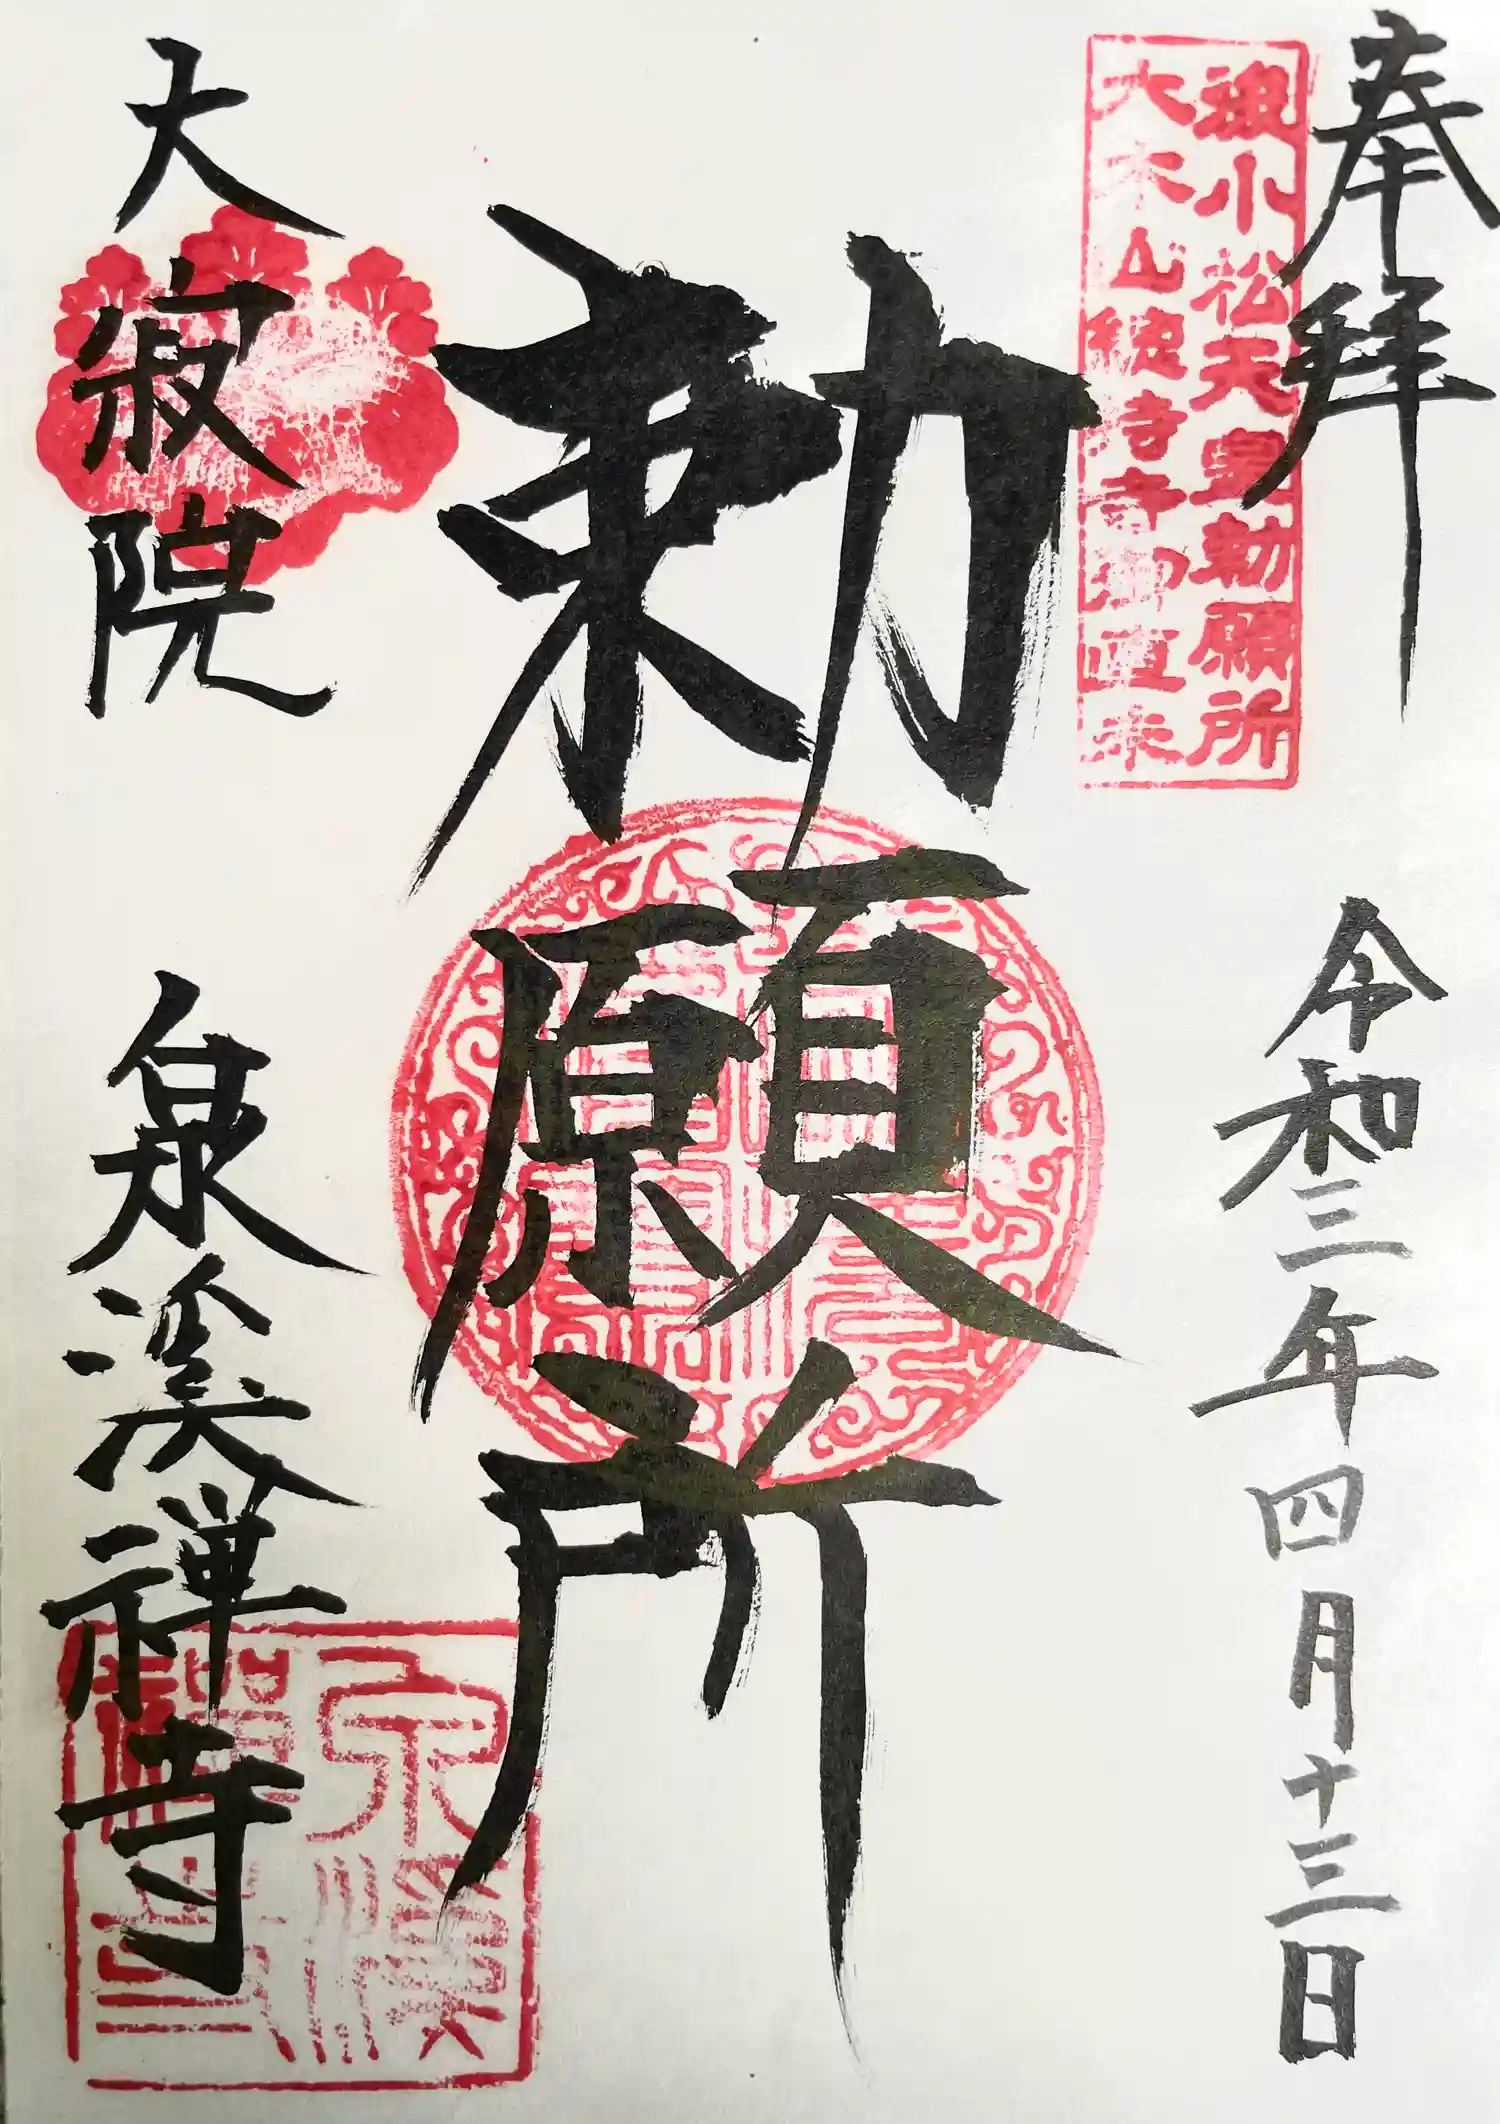 奉拝
令和三年四月十三日
後小松天皇勅願所
大本山總持寺御直末
勅願所
大寂院
泉溪禅寺